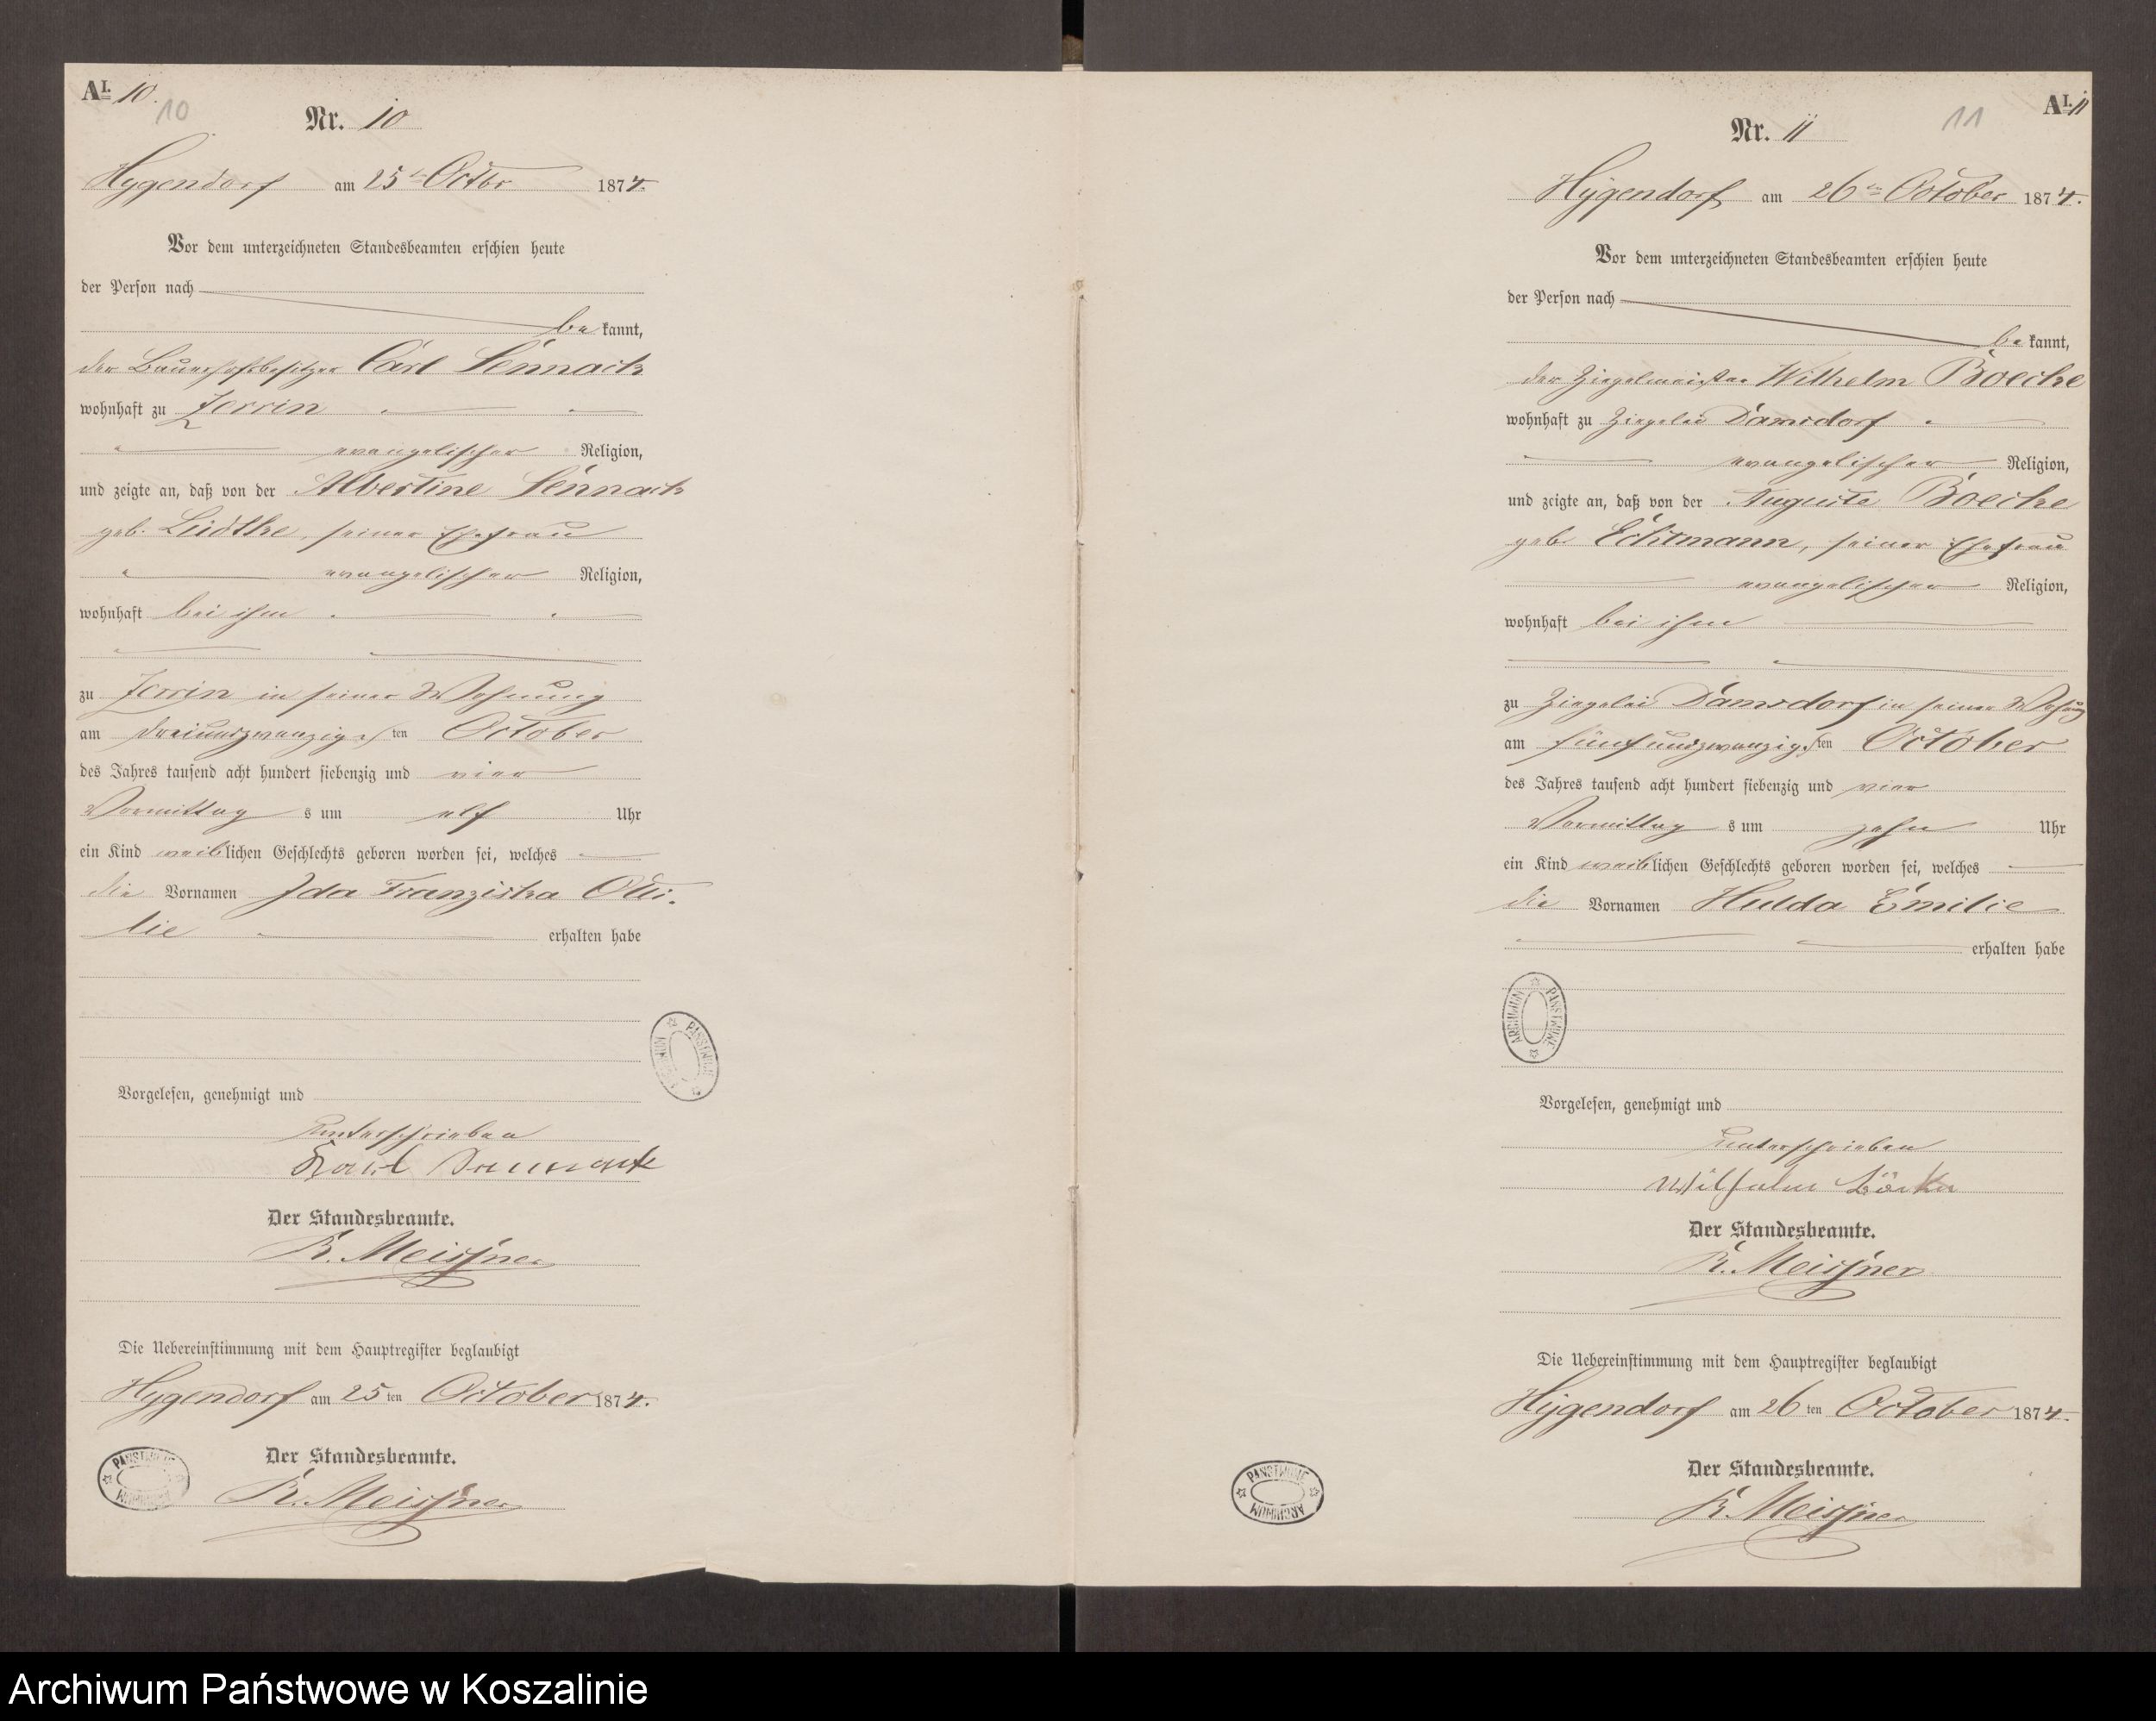 AI. 10.
10
Nr. 10
Hygendorf am 25ten Octbr 1874.
Vor dem unterzeichneten Standesbeamten erschien heute
der Person nach
be kannt,
der Bauerhofsbesitzer Carl
wohnhaft zu Jerrin
evangelischer Religion,
und zeigte an, daß von der Albertine
geb. Lüdtke, seiner Ehefrau
evangelischer Religion,
wohnhaft bei ihm
zu Jerrin in seiner Wohnung
am dreiundzwanzigsten October
des Jahres tausend acht hundert siebenzig und vier
Vormittags um elf Uhr
ein Kind weiblichen Geschlechts geboren worden sei, welches
die Vornamen Ida Franziska Otti-
lie erhalten habe
Vorgelesen, genehmigt und
unterschrieben
Karl
Der Standesbeamte.
R. Meissner
Die Uebereinstimmung mit dem Hauptregister beglaubigt
Hygendorf am 25ten October 1874.
Der Standesbeamte.
R. Meissner
PAŃSTWOWE ARCHIWUM
PAŃSTWOWE ARCHIWUM
AI. 11
11
Nr. 11
Hygendorf am 26ten October 1874.
Vor dem unterzeichneten Standesbeamten erschien heute
der Person nach
be kannt,
der Ziegelmeister Wilhelm Boecke
wohnhaft zu Ziegelei Damsdorf
evangelischer Religion,
und zeigte an, daß von der Auguste Boecke
geb. Echtmann, seiner Ehefrau
evangelischer Religion,
wohnhaft bei ihm
zu Ziegelei Damsdorf in seiner Wohnung
am fünfundzwanzigsten October
des Jahres tausend acht hundert siebenzig und vier
Vormittags um zehn Uhr
ein Kind weiblichen Geschlechts geboren worden sei, welches
die Vornamen Hulda Emilie
erhalten habe
PAŃSTWOWE ARCHIWUM
Vorgelesen, genehmigt und
unterschrieben
Wilhelm Böcke
Der Standesbeamte.
R. Meissner
Die Uebereinstimmung mit dem Hauptregister beglaubigt
Hygendorf am 26ten October 1874.
Der Standesbeamte.
R. Meissner
PAŃSTWOWE ARCHIWUM
Archiwum Państwowe w Koszalinie